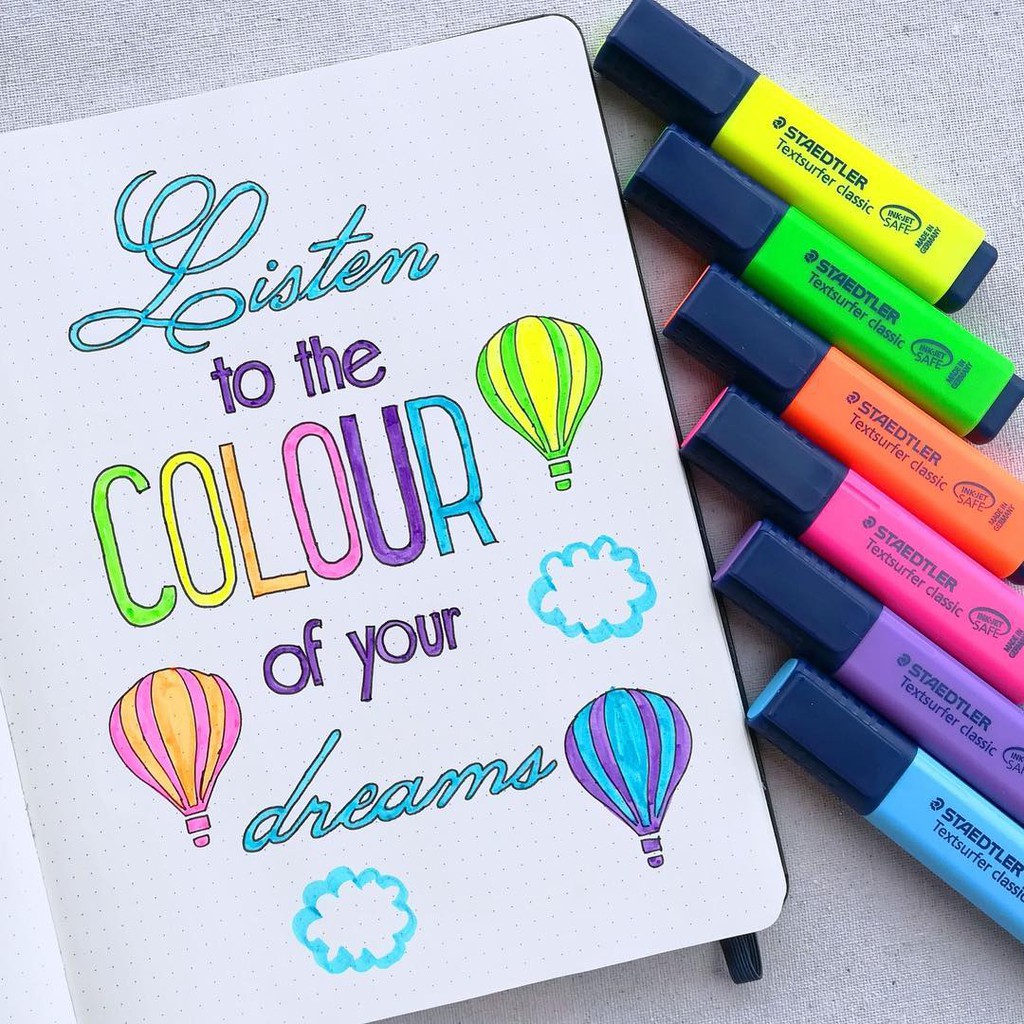 Listen
to the
COLOUR
of your
dreams
STAEDTLER
Textsurfer classic
INK-JET
SAFE
MADE IN
GERMANY
STAEDTLER
Textsurfer classic
INK-JET
SAFE
MADE IN
GERMANY
STAEDTLER
Textsurfer classic
INK-JET
SAFE
MADE IN
GERMANY
STAEDTLER
Textsurfer classic
INK-JET
SAFE
MADE IN
STAEDTLER
Textsurfer classic
STAEDTLER
Textsurfer classic